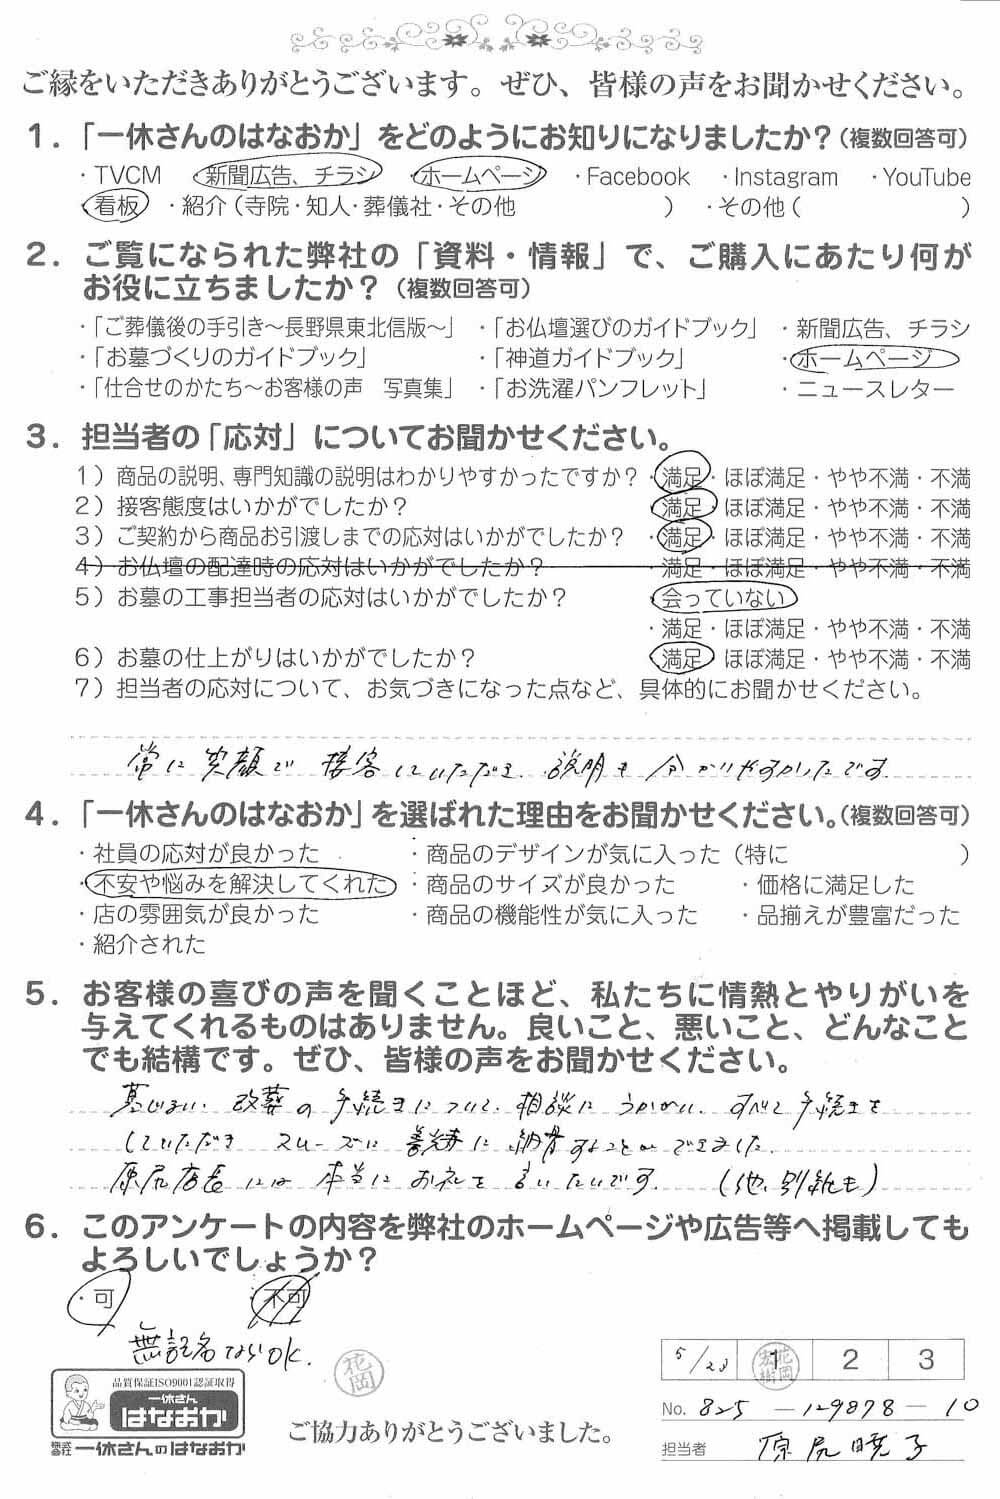 ご縁をいただきありがとうございます。ぜひ、皆様の声をお聞かせください。
1.「一休さんのはなおか」をどのようにお知りになりましたか?(複数回答可)
・TVCM ・新聞広告、チラシ ・ホームページ ・Facebook ・Instagram ・YouTube
・看板 ・紹介(寺院・知人・葬儀社・その他 ) ・その他( )
2.ご覧になられた弊社の「資料・情報」で、ご購入にあたり何が
お役に立ちましたか?(複数回答可)
・「ご葬儀後の手引き〜長野県東北信版〜」 ・「お仏壇選びのガイドブック」 ・新聞広告、チラシ
・「お墓づくりのガイドブック」 ・「神道ガイドブック」 ・ホームページ
・「仕合せのかたち〜お客様の声 写真集」 ・「お洗濯パンフレット」 ・ニュースレター
3.担当者の「応対」についてお聞かせください。
1)商品の説明、専門知識の説明はわかりやすかったですか? ・満足・ほぼ満足・やや不満・不満
2)接客態度はいかがでしたか? ・満足・ほぼ満足・やや不満・不満
3)ご契約から商品お引渡しまでの応対はいかがでしたか? ・満足・ほぼ満足・やや不満・不満
4)お仏壇の配達時の応対はいかがでしたか? ・満足・ほぼ満足・やや不満・不満
5)お墓の工事担当者の応対はいかがでしたか? ・会っていない
・満足・ほぼ満足・やや不満・不満
6)お墓の仕上がりはいかがでしたか? ・満足・ほぼ満足・やや不満・不満
7)担当者の応対について、お気づきになった点など、具体的にお聞かせください。
常に笑顔で接客していただき、説明も分かりやすかったです.
4.「一休さんのはなおか」を選ばれた理由をお聞かせください。(複数回答可)
・社員の応対が良かった ・商品のデザインが気に入った(特に )
・不安や悩みを解決してくれた ・商品のサイズが良かった ・価格に満足した
・店の雰囲気が良かった ・商品の機能性が気に入った ・品揃えが豊富だった
・紹介された
5.お客様の喜びの声を聞くことほど、私たちに情熱とやりがいを
与えてくれるものはありません。良いこと、悪いこと、どんなこと
でも結構です。ぜひ、皆様の声をお聞かせください。
墓じまい、改葬の手続きについて、相談にうかがい、すべて手続きを
していただき スムーズに 善光寺に納骨することができました.
原尻店長には本当にお礼を言いたいです.(他、別紙も)
6.このアンケートの内容を弊社のホームページや広告等へ掲載しても
よろしいでしょうか?
・可 ・不可
無記名ならOK.
花岡
5/23 1 2 3
花岡宏樹
品質保証ISO9001認証取得
一休さん
はなおか
一休さんのはなおか
ご協力ありがとうございました。
No. 825-129878-10
担当者 原尻暁子